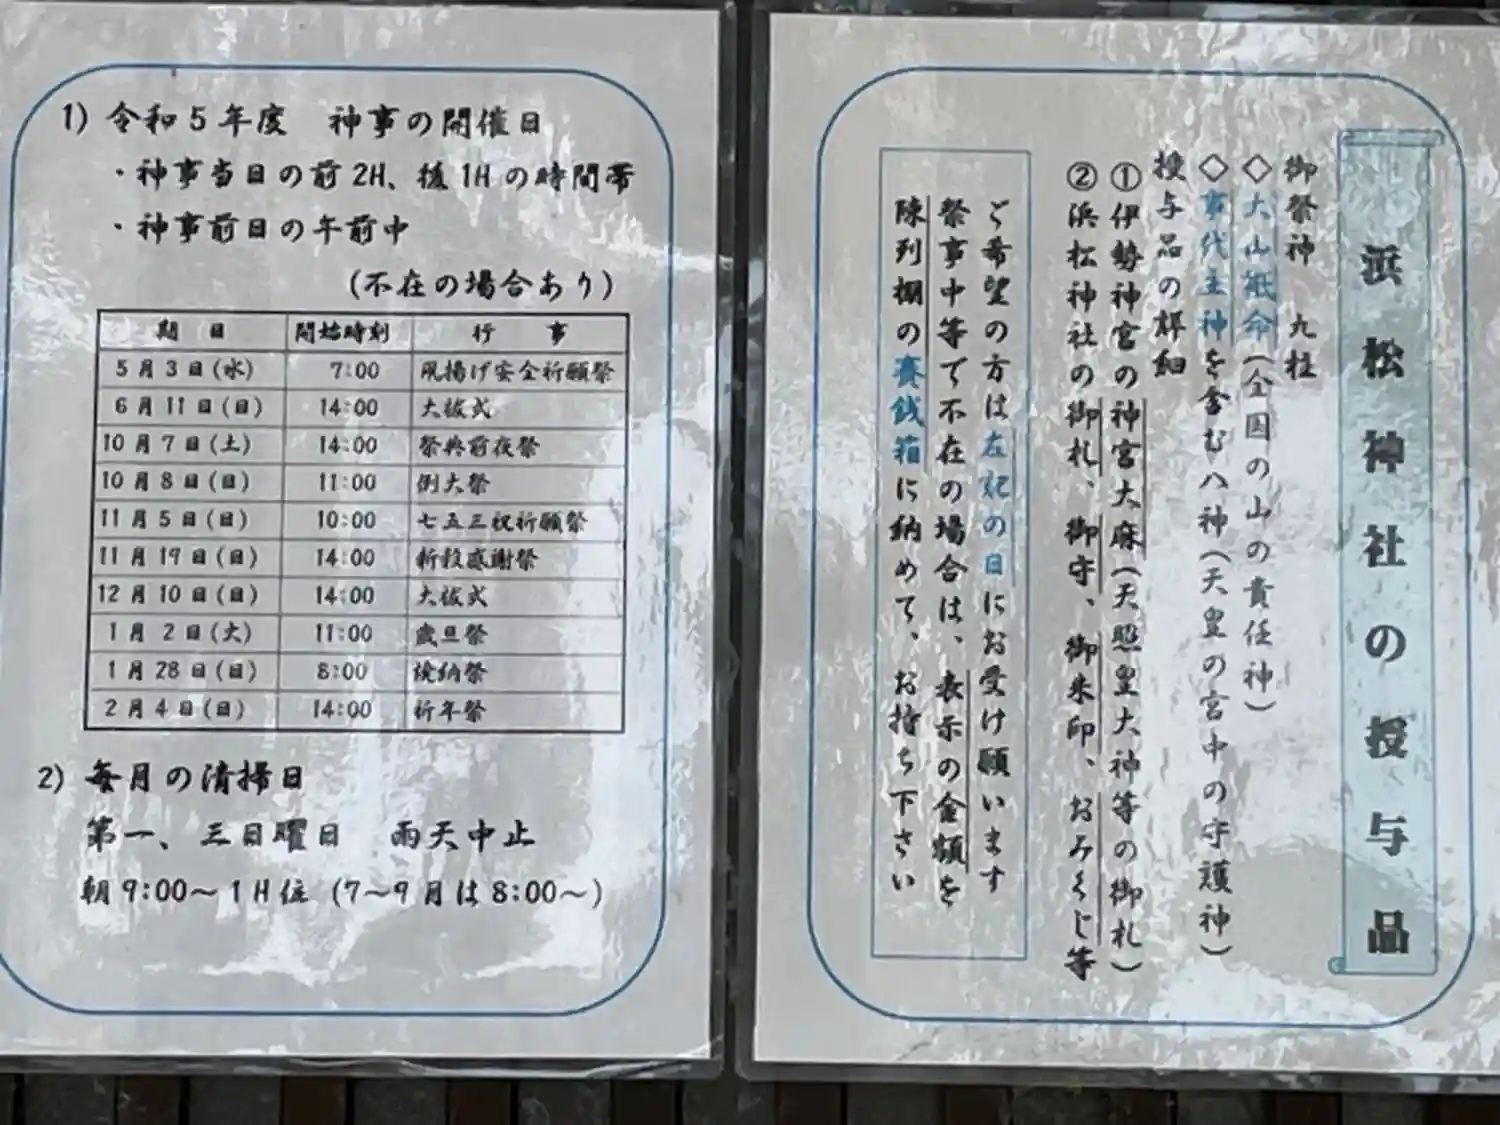 1) 令和5年度　神事の開催日
・神事当日の前2H、後1Hの時間帯
・神事前日の午前中
(不在の場合あり)
期　日　開始時刻　行　事
5月3日(水)　7:00　凧揚げ安全祈願祭
6月11日(日)　14:00　大祓式
10月7日(土)　14:00　祭典前夜祭
10月8日(日)　11:00　例大祭
11月5日(日)　10:00　七五三祝祈願祭
11月19日(日)　14:00　新穀感謝祭
12月10日(日)　14:00　大祓式
1月2日(火)　11:00　歳旦祭
1月28日(日)　8:00　焼納祭
2月4日(日)　14:00　祈年祭
2) 毎月の清掃日
第一、三日曜日　雨天中止
朝9:00～1H位 (7～9月は8:00～)
浜松神社の授与品
御祭神　九柱
◇大山祇命(全国の山の責任神)
◇事代主神を含む八神(天皇の宮中の守護神)
授与品の詳細
①伊勢神宮の神宮大麻(天照皇大神等の御札)
②浜松神社の御札、御守、御朱印、おみくじ等
ご希望の方は左記の日にお受け願います
祭事中等で不在の場合は、表示の金額を
陳列棚の賽銭箱に納めて、お持ち下さい